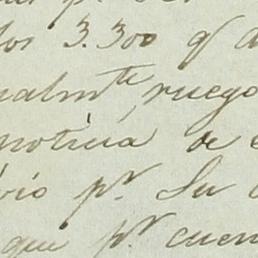 los 3.300 q̃ d
nalmte, ruego
noticia de e
vio pr. Su
que pr. cuen